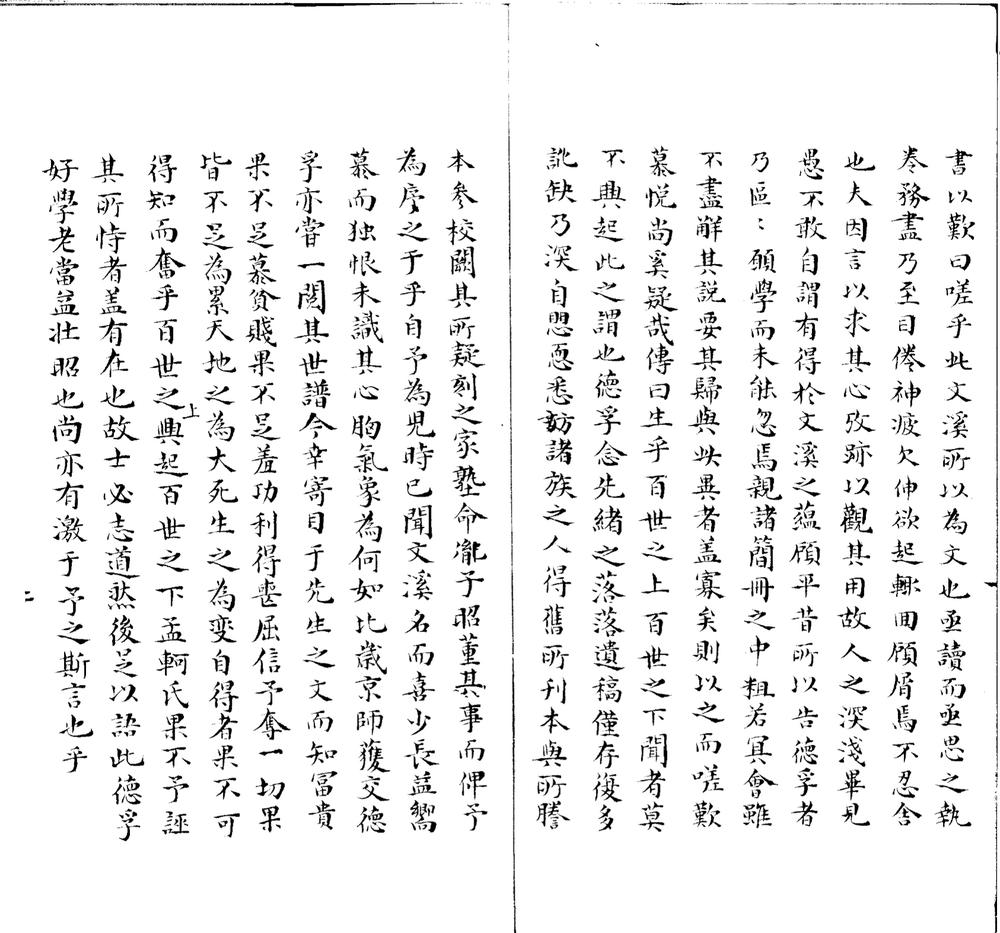 書以歎曰嗟乎此文溪所以為文也亟讀而亟思之執
卷務盡乃至目倦神疲欠伸欲起輒回顧屑焉不忍舍
也夫因言以求其心攷跡以觀其用故人之深淺畢見
愚不敢自謂有得於文溪之蘊顧平昔所以告德孚者
乃區〻願學而未能忽焉親諸簡冊之中粗若冥會雖
不盡觧其說要其歸與此異者盖寡矣則以之而嗟歎
慕悦尚奚疑哉傳曰生乎百世之上百世之下聞者莫
不興起此之謂也德孚念先緒之落落遺稿僅存復多
訛缺乃深自愳恧悉訪諸族之人得舊所刊本與所謄
本參校闕其所疑刻之家塾命胤子昭董其事而俾予
為序之于乎自予為兒時已聞文溪名而喜少長益嚮
慕而独恨未識其心胸氣象為何如比歲京師獲交德
孚亦嘗一閲其世譜今幸寄目于先生之文而知冨貴
果不足慕貧賤果不足羞功利得喪屈信予奪一切果
皆不足為累天地之為大死生之為变自得者果不可
得知而奮乎百世之上興起百世之下孟軻氏果不予誣
其所恃者盖有在也故士必志道然後足以語此德孚
好學老當益壯昭也尚亦有激于予之斯言也乎
二